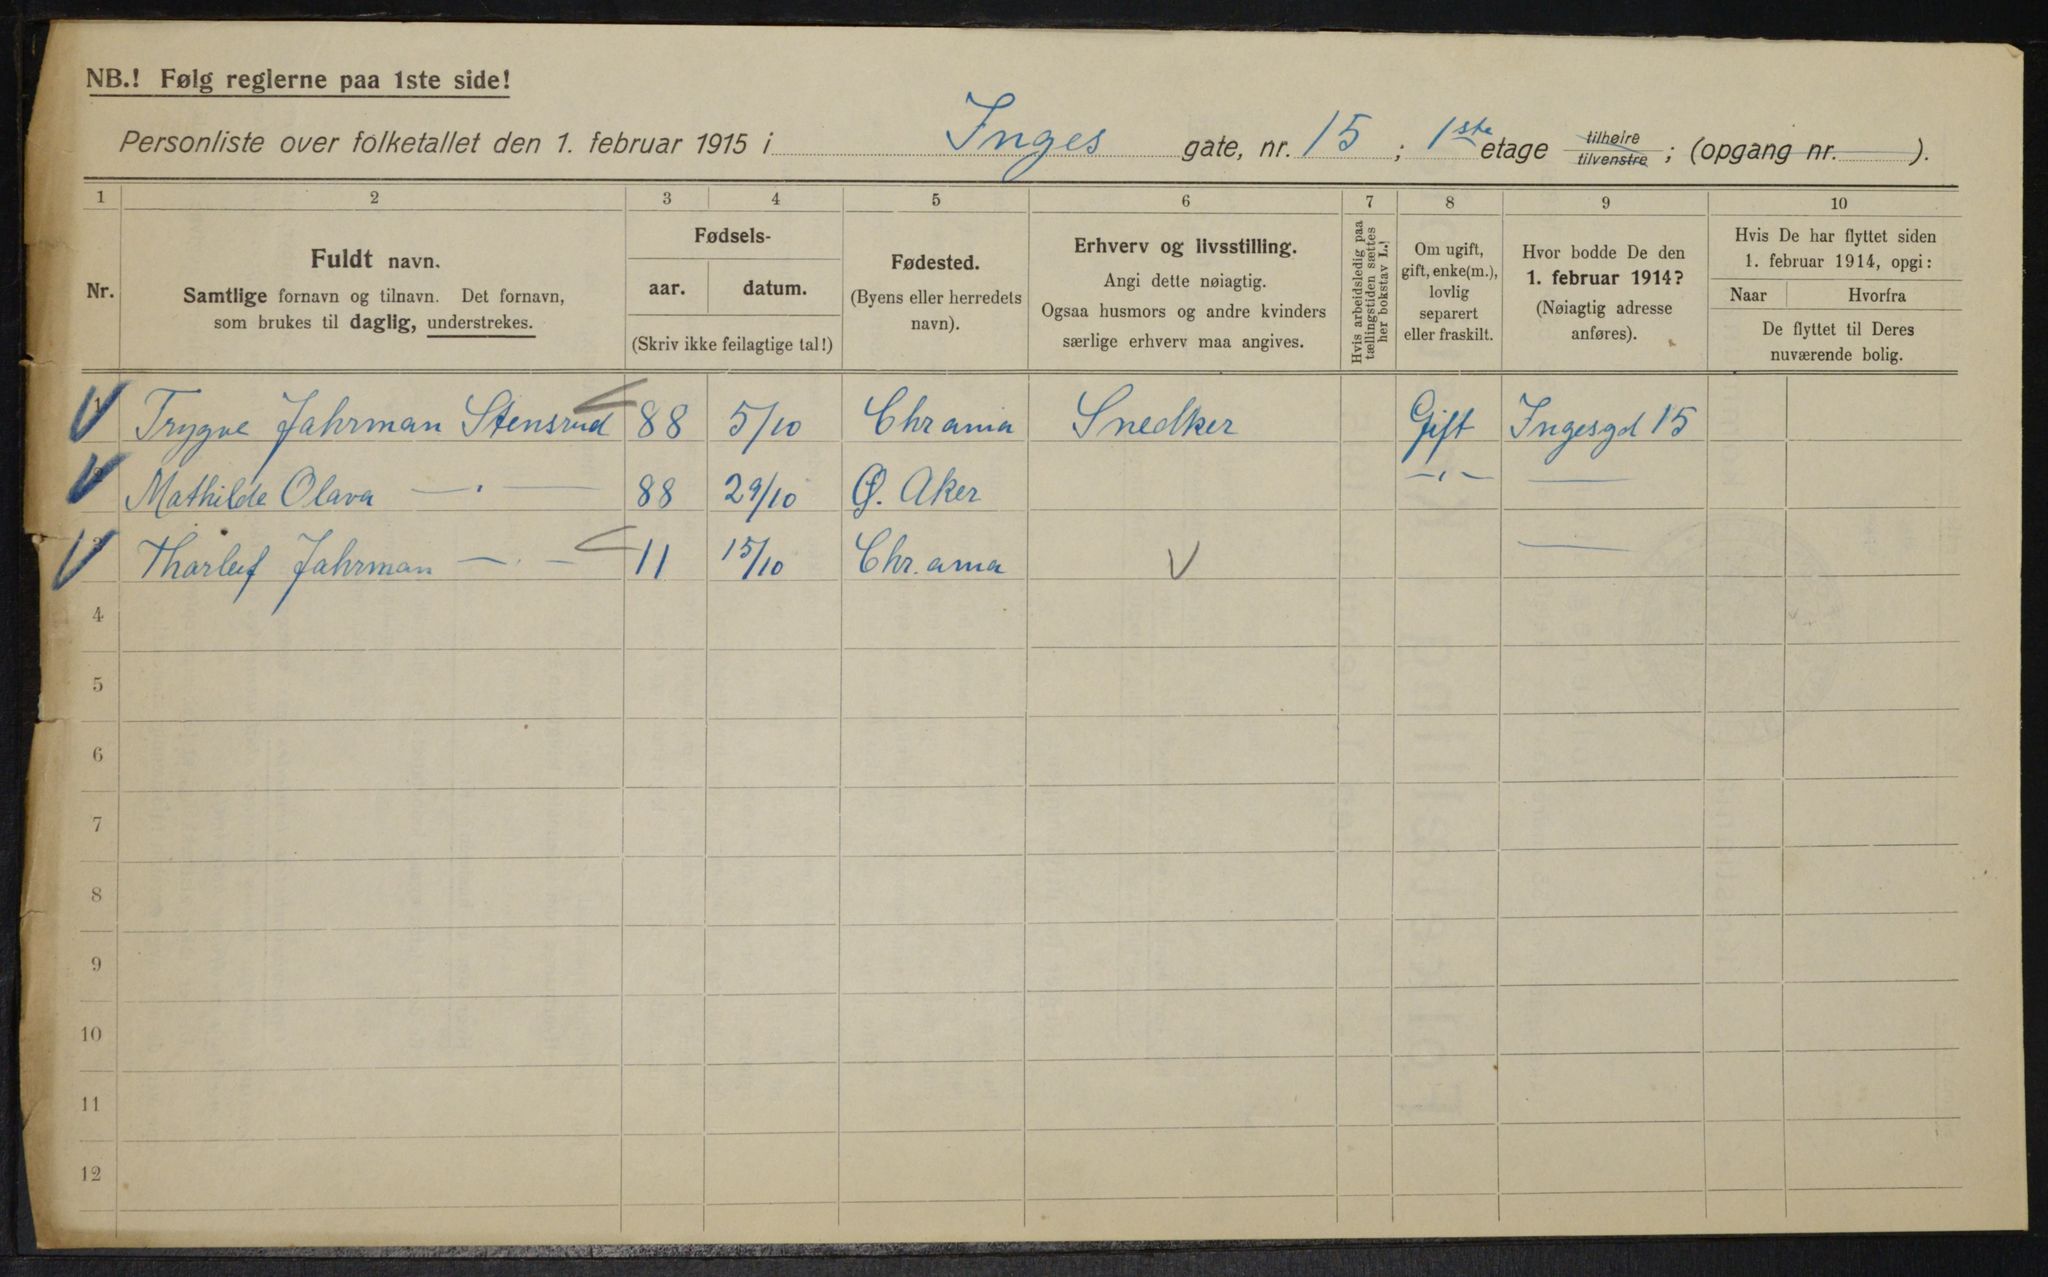 NB.! Følg reglerne paa 1ste side!
Personliste over folketallet den 1. februar 1915 i Inges gate, nr. 15 ; 1ste etage tilhøire tilvenstre ; (opgang nr. ).
1 2 3 4 5 6 7 8 9 10
Nr.
Fuldt navn.
Samtlige fornavn og tilnavn. Det fornavn,
som brukes til daglig, understrekes.
Fødsels-
aar. datum.
(Skriv ikke feilagtige tal!)
Fødested.
(Byens eller herredets
navn).
Erhverv og livsstilling.
Angi dette nøiagtig.
Ogsaa husmors og andre kvinders
særlige erhverv maa angives.
Hvis arbeidsledig paa
tællingstiden sættes
her bokstav L.!
Om ugift,
gift, enke(m.),
lovlig
separert
eller fraskilt.
Hvor bodde De den
1. februar 1914?
(Nøiagtig adresse
anføres).
Hvis De har flyttet siden
1. februar 1914, opgi:
Naar Hvorfra
De flyttet til Deres
nuværende bolig.
1 Trygve Jahrman Stensrud 88 5/10 Chr ania Snedker Gift Ingesgd 15
2 Mathilde Olava —„— 88 29/10 Ø. Aker —„— ——
3 Thorleif Jahrman —„— 11 15/10 Chr. ania ——
4
5
6
7
8
9
10
11
12